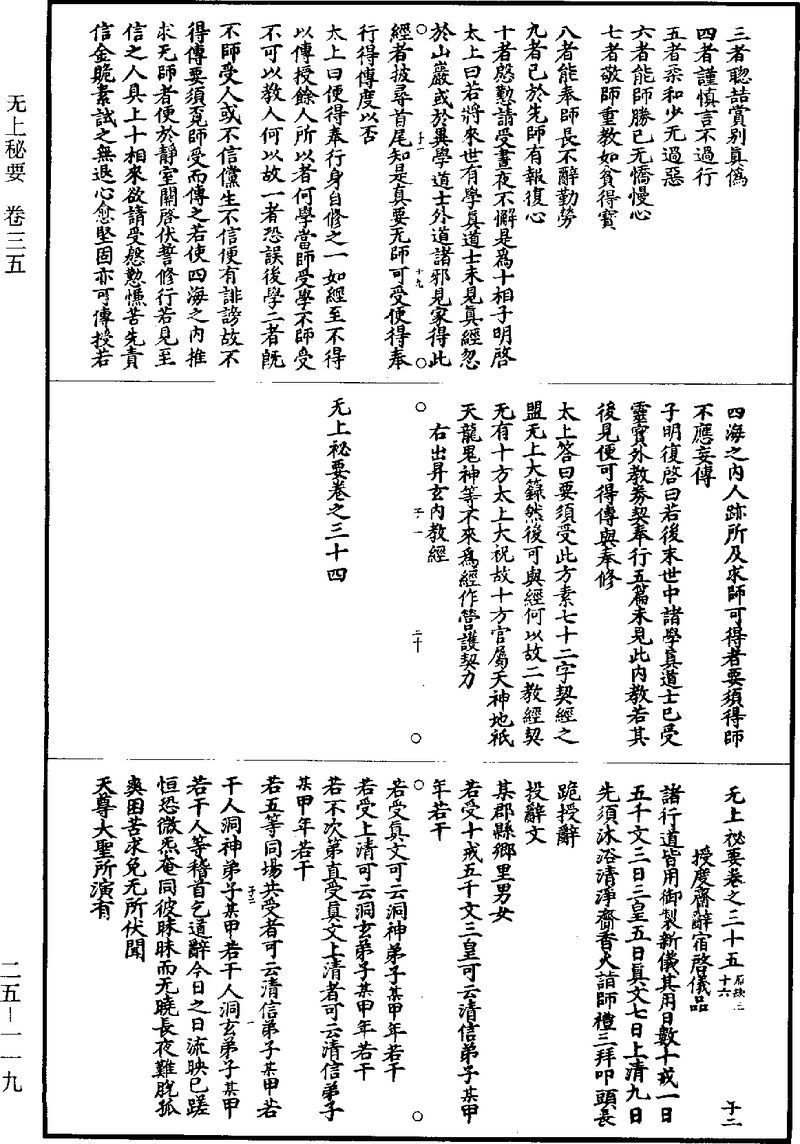 无上秘要　卷三五
二五—一一九
三者聰詰賞别真偽
四者謹慎言不過行
五者柔和少无過惡
六者能師勝已无憍慢心
七者敬師重教如貧得寳
八者能奉師長不辭勤勞
九者已於先師有報復心
十者慇懃請受晝夜不懈是爲十相子明啓
太上曰若將來世有學真道士未見真經忽
於山巖或於異學道士外道諸邪見家得此
經者披尋首尾知是真要无師可受便得奉
行得傳度以否
太上曰便得奉行身自修之一如經至不得
以傳授餘人所以者何學當師受學不師受
不可以教人何以故一者恐誤後學二者既
不師受人或不信儻生不信便有誹謗故不
得傳要須覔師受而傳之若使四海之内推
求无師者便於靜室關啓伏誓修行若見至
信之人具上十相來欲請受慇懃憔苦先責
信金脆素試之無退心愈堅固亦可傳授若
四海之内人跡所及求師可得者要須得師
不應妄傳
子明復啓曰若後末世中諸學真道士已受
靈寶外教券契奉行五篇未見此内教若其
後見便可得傳與奉修
太上答曰要須受此方素七十二字契經之
盟无上大籙然後可與經何以故二教經契
无有十方太上大祝故十方官屬天神地祇
天龍鬼神等不來爲經作營護契力
右出昇玄内教經
无上祕要卷之三十四
无上祕要卷之三十五
授度齋辭宿啓儀品
諸行道皆用御製新儀其用日數十戒一日
五千文三日三皇五日真文七日上清九日
先須沐浴清淨齎香火詣師禮三拜叩頭長
跪授辭
投辭文
某郡縣鄉里男女
若受十戒五千文三皇可云清信弟子某甲
年若干
若受真文可云洞神弟子某甲年若干
若受上清可云洞玄弟子某甲年若干
若不次第直受真文上清者可云清信弟子
某甲年若干
若五等同場共受者可云清信弟子某甲若
干人洞神弟子某甲若干人洞玄弟子某甲
若干人等稽首乞道辭今日之日流映已蹉
恒恐微炁奄同彼昧昧而无曉長夜難脱孤
爽困苦求免无所伏聞
天尊大聖所演有